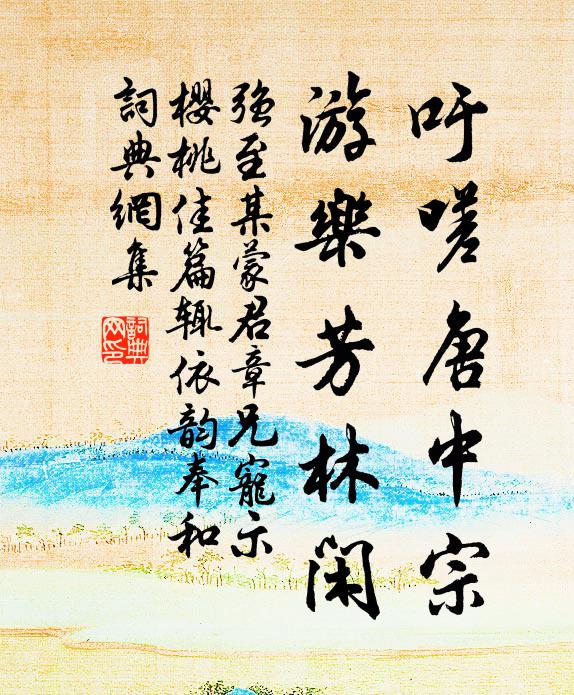 吁嗟唐中宗
游樂芳林閑
強至某蒙君章兄寵示
櫻桃佳篇辄依韵奉和
詞典網集
詞典网印